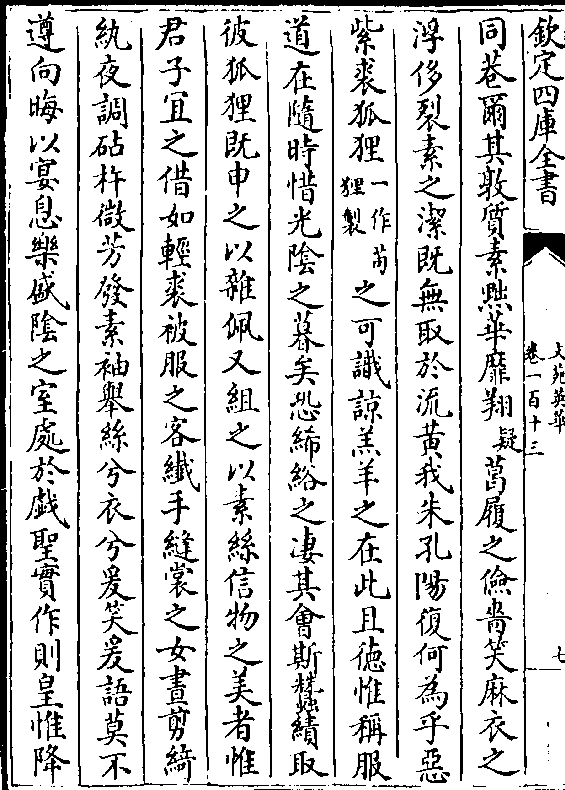 欽定四庫全書
文苑英華
卷一百十三
七
同巷爾其敦質素黜華靡翔疑葛屨之儉嗇笑麻衣之
浮侈裂素之潔既無取於流黄我朱孔陽復何為乎惡
紫裘狐狸一作芮狸製之可譏諒羔羊之在此且徳惟稱服
道在隨時惜光陰之暮矣恐絺綌之凄其會斯蠶績取
彼狐狸既申之以雜佩又組之以素絲信物之美者惟
君子宜之借如輕裘被服之客纖手縫裳之女晝剪綺
紈夜調砧杵微芳發素袖舉絲兮衣兮爰笑爰語莫不
遵向晦以宴息樂盛陰之室處於戯聖實作則皇惟降